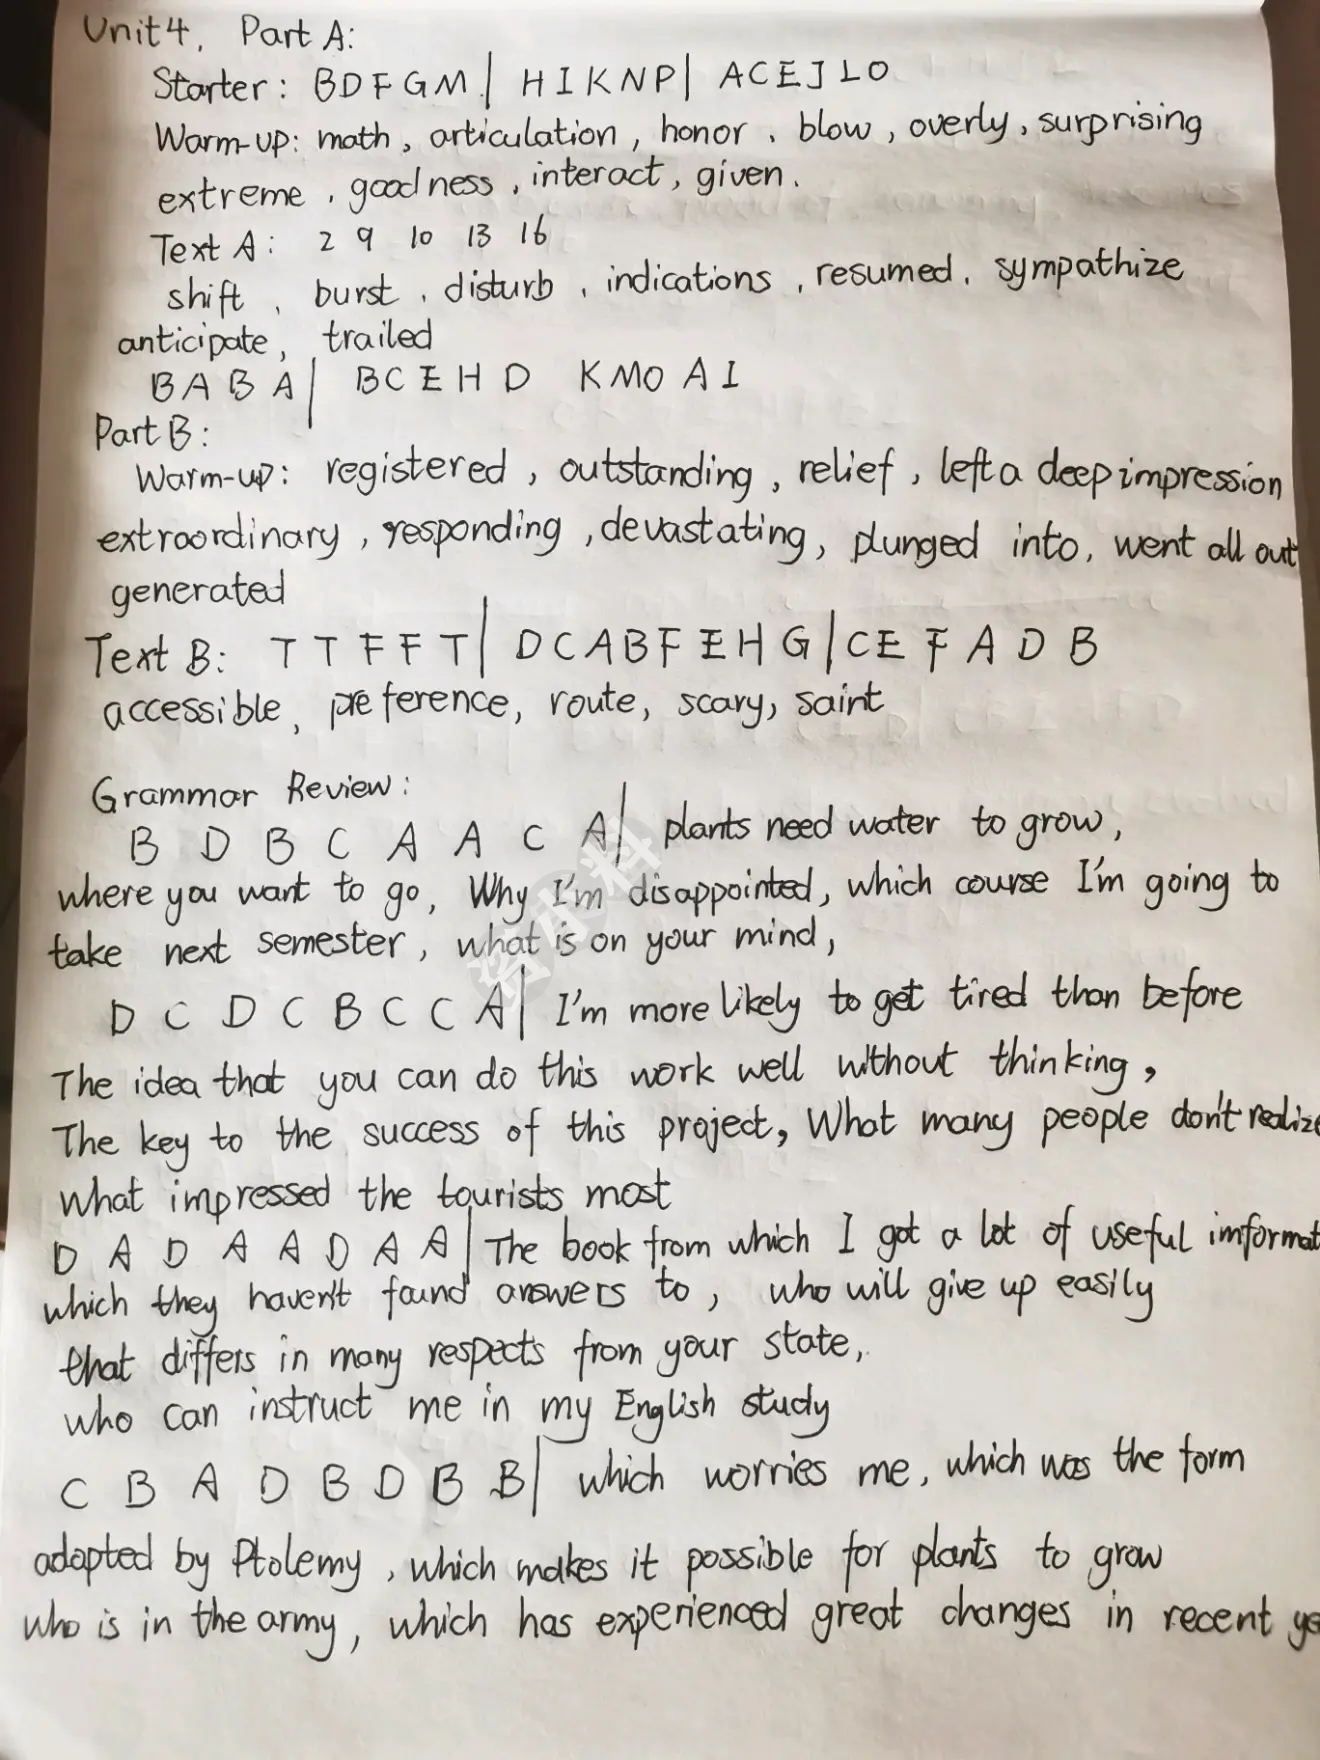 Unit4, Part A:
Starter: BDFGM| HIKNP| ACEJLO
Warm-up: math, articulation, honor, blow, overly, surprising
extreme, goodness, interact, given.
Text A: 2 9 10 13 16
shift, burst, disturb, indications, resumed, sympathize
anticipate, trailed
B A B A| B C E H D K M O A I
Part B:
Warm-up: registered, outstanding, relief, left a deep impression
extroordinary, responding, devastating, plunged into, went all out
generated
Text B: T T F F T| D C A B F E H G| C E F A D B
accessible, preference, route, scary, saint
Grammar Review:
B D B C A A C A| plants need water to grow,
where you want to go, Why I'm disappointed, which course I'm going to
take next semester, what is on your mind,
D C D C B C C A| I'm more likely to get tired than before
The idea that you can do this work well without thinking,
The key to the success of this project, What many people don't realize
what impressed the tourists most
D A D A A D A A| The book from which I got a lot of useful imformat
which they haven't found answers to, who will give up easily
that differs in many respects from your state,
who can instruct me in my English study
C B A D B D B B| which worries me, which was the form
adopted by Ptolemy, which makes it possible for plants to grow
who is in the army, which has experienced great changes in recent ye